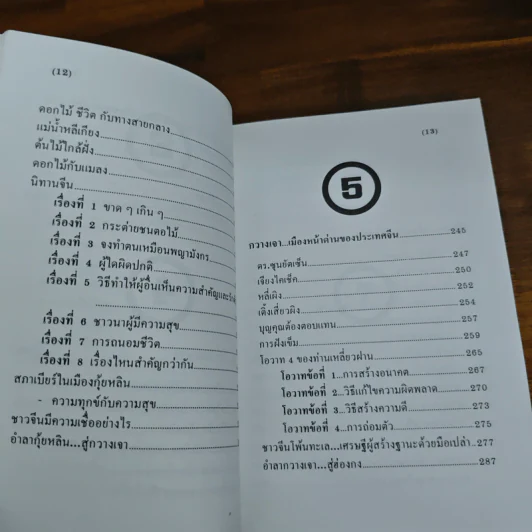 (12)
ดอกไม้ ชีวิต กับทางสายกลาง
แม่น้ำหลีเกียง
ต้นไม้ใกล้ฝั่ง
ดอกไม้กับแมลง
นิทานจีน
เรื่องที่ 1 ขาด ๆ เกิน ๆ
เรื่องที่ 2 กระต่ายชนตอไม้
เรื่องที่ 3 จงทำตนเหมือนพญามังกร
เรื่องที่ 4 ผู้ใดผิดปกติ
เรื่องที่ 5 วิธีทำให้ผู้อื่นเห็นความสำคัญ
เรื่องที่ 6 ชาวนาผู้มีความสุข
เรื่องที่ 7 การถนอมชีวิต
เรื่องที่ 8 เรื่องไหนสำคัญกว่ากัน
สภาเบียร์ในเมืองกุ้ยหลิน
- ความทุกข์กับความสุข
ชาวจีนมีความเชื่ออย่างไร
อำลากุ้ยหลิน...สู่กวางเจา
(13)
5
กวางเจา...เมืองหน้าด่านของประเทศจีน 245
ดร.ซุนยัตเซ็น 247
เจียงไคเช็ค 250
หลี่เผิง 252
เติ้งเสี่ยวผิง 254
บุญคุณต้องตอบแทน 257
การฝังเข็ม 259
โอวาท 4 ของท่านเหลี่ยวฝาน 265
โอวาทข้อที่ 1...การสร้างอนาคต 267
โอวาทข้อที่ 2...วิธีแก้ไขความผิดพลาด 270
โอวาทข้อที่ 3...วิธีสร้างความดี 273
โอวาทข้อที่ 4...การถ่อมตัว 275
ชาวจีนโพ้นทะเล...เศรษฐีผู้สร้างฐานะด้วยมือเปล่า 277
อำลากวางเจา...สู่ฮ่องกง 287